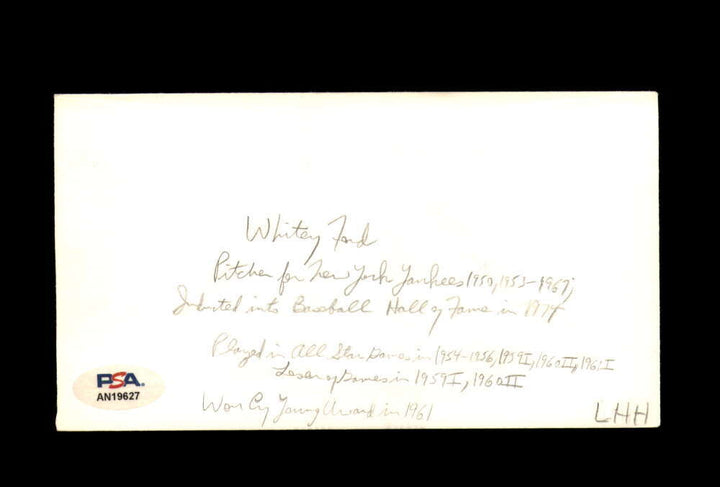 Whitey Ford
Pitcher for New York Yankees 1950, 1953-1967;
Inducted into Baseball Hall of Fame in 1974
Played in All Star Games in 1954-1956, 1959I, 1960II, 1961I
Loser of Games in 1959I, 1960II
Won Cy Young Award in 1961
LHH
PSA.
AN19627